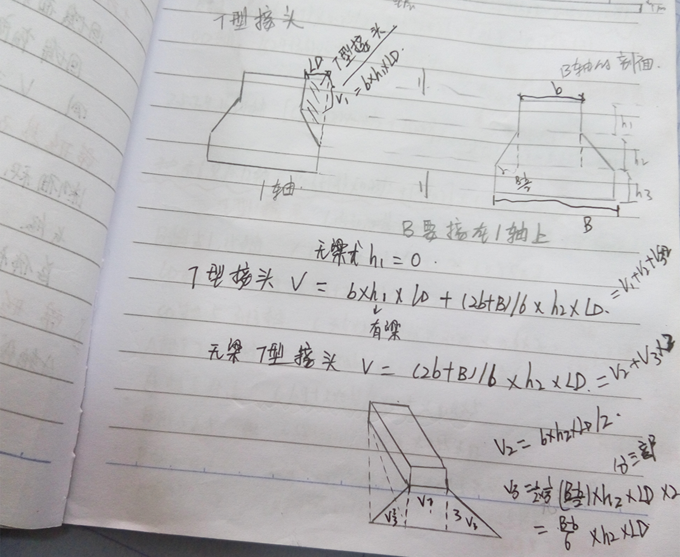 T型接头
LD
T型接头
V₁ = b×h₁×LD.
1轴.
B轴的剖面.
b
h₁
h₂
h₃
B
B要接在1轴上
无梁式 h₁ = 0.
T型接头 V = b×h₁×LD + (2b+B)/6 × h₂ × LD. = V₁+V₂+V₃
有梁
无梁T型接头 V = (2b+B)/6 × h₂ × LD. = V₂+V₃
V₂ = b×h₂×LD/2.
V₃ V₂ 3 V₃
= B-b/6 × h₂ × LD